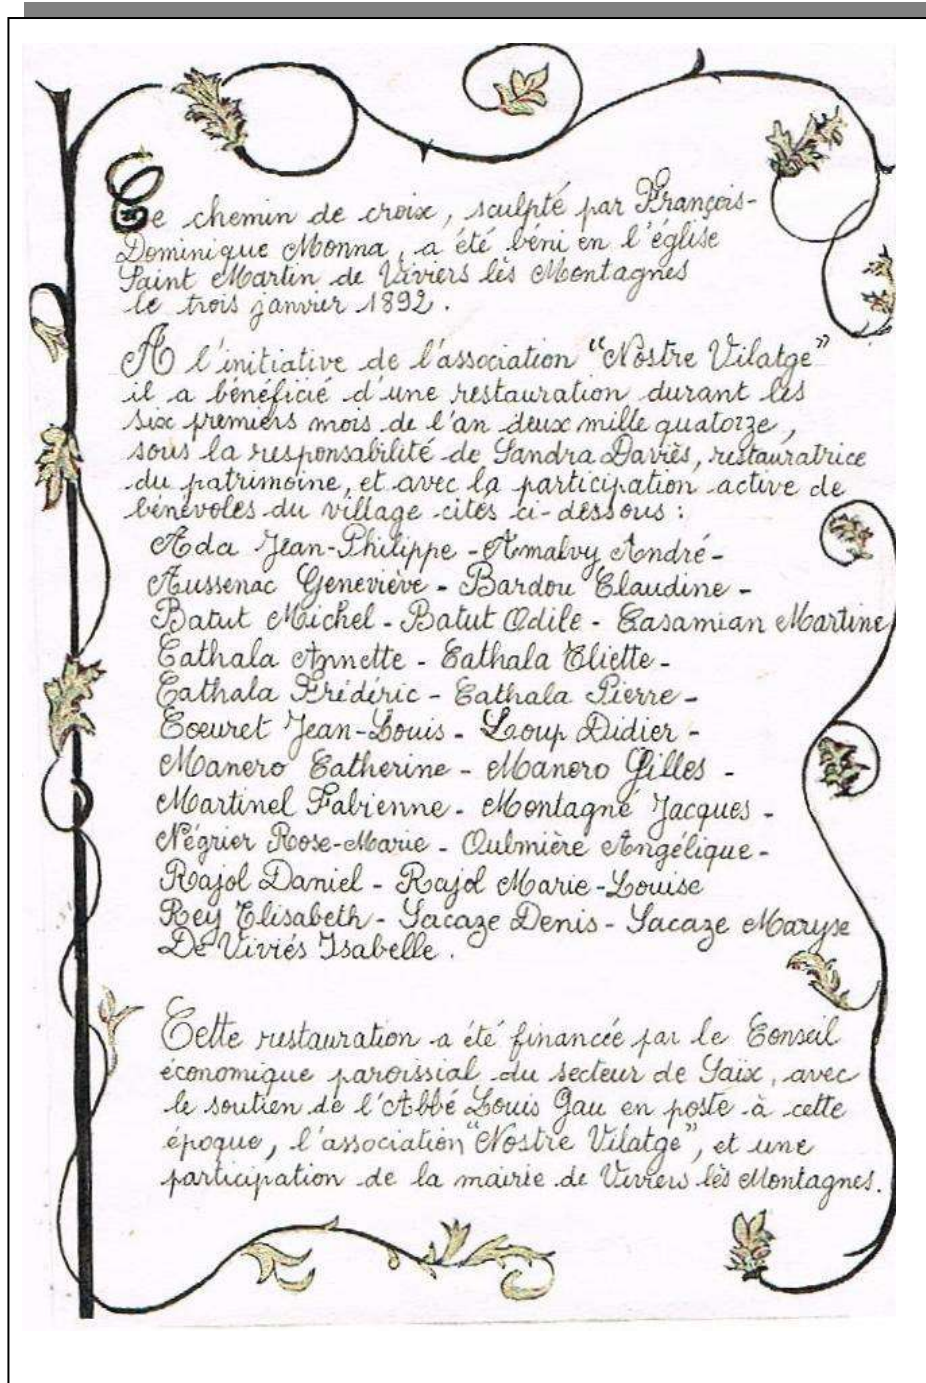 Ce chemin de croix, sculpté par François-
Dominique Monna, a été béni en l'église
Saint Martin de Viviers lès Montagnes
le trois janvier 1892.
A l'initiative de l'association "Nostre Vilatge"
il a bénéficié d'une restauration durant les
six premiers mois de l'an deux mille quatorze,
sous la responsabilité de Sandra Daviès, restauratrice
du patrimoine, et avec la participation active de
bénévoles du village cités ci-dessous :
Ada Jean-Philippe - Amalvy André -
Aussenac Geneviève - Bardou Claudine -
Batut Michel - Batut Odile - Casamian Martine
Cathala Annette - Cathala Eliette -
Cathala Frédéric - Cathala Pierre -
Coeuret Jean-Louis - Loup Didier -
Manero Catherine - Manero Gilles -
Martinel Fabienne - Montagné Jacques -
Négrier Rose-Marie - Oulmière Angélique -
Rajol Daniel - Rajol Marie-Louise
Rey Elisabeth - Sacaze Denis - Sacaze Maryse
De Viviés Isabelle.
Cette restauration a été financée par le Conseil
économique paroissial du secteur de Saïx, avec
le soutien de l'Abbé Louis Gau en poste à cette
époque, l'association "Nostre Vilatge", et une
participation de la mairie de Viviers lès Montagnes.